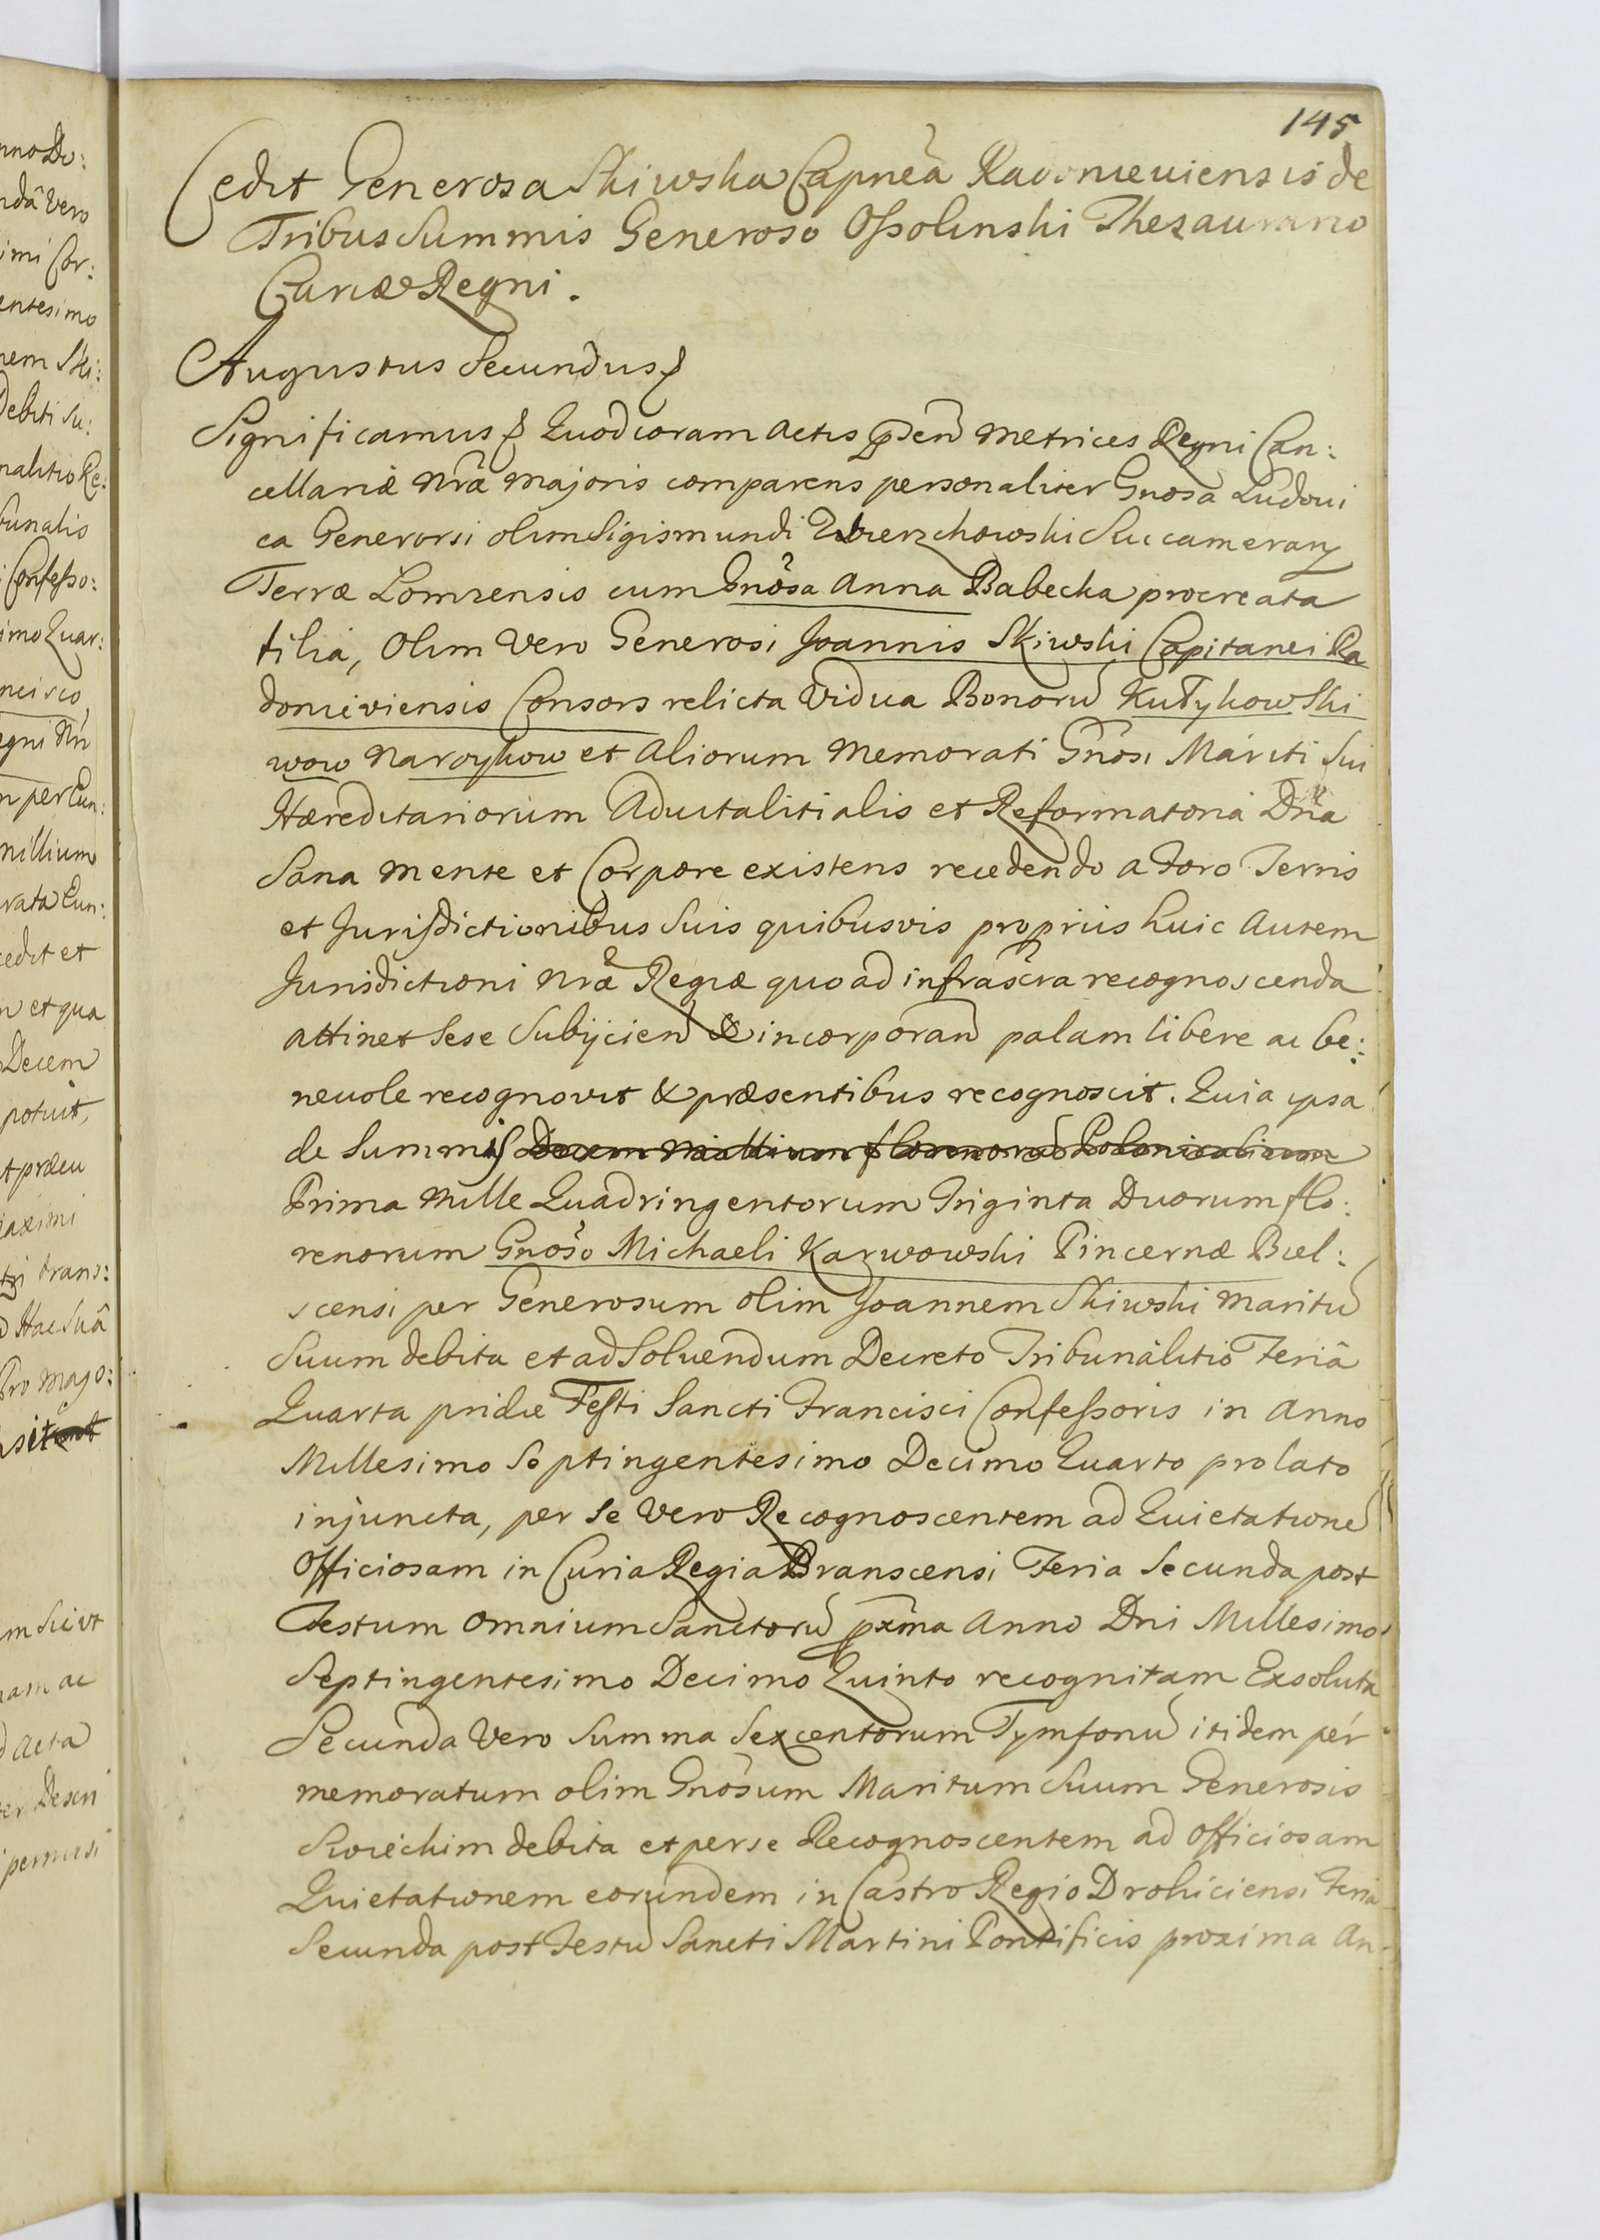 145
Cedit Generosa Skiwska Capnea Radonieviensis de
Tribus Summis Generoso Ossolinski Thesaurario
Curiæ Regni.
Augustus Secundus
Significamus Quod coram Actis psen Metrices Regni Can:
cellariæ Nræ Majoris comparens personaliter Gnosa Ludovi
ca Generorsi olim Sigismundi Zbierzchowski Succamerarij
Terræ Lomzensis cum Gnosa Anna Babecka procreata
filia, Olim Vero Generosi Joannis Skiwski Capitanei Ra
donieviensis Consors relicta Vidua Bonorū Kutyłow Ski
wow Naroykow et Aliorum Memorati Gnosi Mariti Sui
Hæreditariorum Advitalitialis et Reformatoria Dna
Sana Mente et Corpore existens recedendo a Foro Terris
et Jurisdictionibus Suis quibusvis propriis huic Autem
Jurisdictioni Nræ Regiæ quo ad infrascra recognoscenda
attinet Sese Subijcien & incorporan palam libere ac be:
nevole recognovit & præsentibus recognoscit. Quia ipsa
de Summis Decem Millium florenorū Polonicalium
Prima Mille Quadringentorum Triginta Duorum flo:
renorum Gnoso Michaeli Karwowski Pincernæ Biel:
scensi per Generosum olim Joannem Skiwski Maritū
Suum debita et ad Solvendum Decreto Tribunalitio Feriâ
Quarta pridie Festi Sancti Francisci Confessoris in Anno
Millesimo Septingentesimo Decimo Quarto prolato
injuncta, per Se Vero Recognoscentem ad Quietationē
Officiosam in Curia Regia Branscensi Feria Secunda post
Festum Omnium Sanctorū pxima Anno Dni Millesimo
Septingentesimo Decimo Quinto recognitam Exsoluta
Secunda Vero Summa Sexcentorum Tymfonū itidem per
memoratum olim Gnosum Maritum Suum Generosis
Swiechim debita et per se Recognoscentem ad Officiosam
Quietationem eorundem in Castro Regio Drohiciensi Feria
Secunda post Festū Sancti Martini Pontificis proxima An